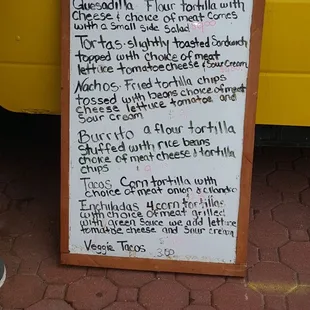 Quesadilla Flour tortilla with
Cheese & choice of meat Comes
with a small side Salad
Tortas. slightly toasted Sandwich
topped with choice of meat
lettuce tomatoe cheese & Sour Cream
Nachos. Fried tortilla chips
tossed with beans choice of meat
Cheese lettuce tomatoe and
Sour cream
Burrito a flour tortilla
Stuffed with rice beans
choice of meat cheese & tortilla
chips
Tacos Corn tortilla with
choice of meat onion & cilandro
Enchiladas 4 corn tortillas
with choice of meat grilled
with green Sauce we add lettuce
tomatoe cheese and sour cream
Veggie Tacos 3.00